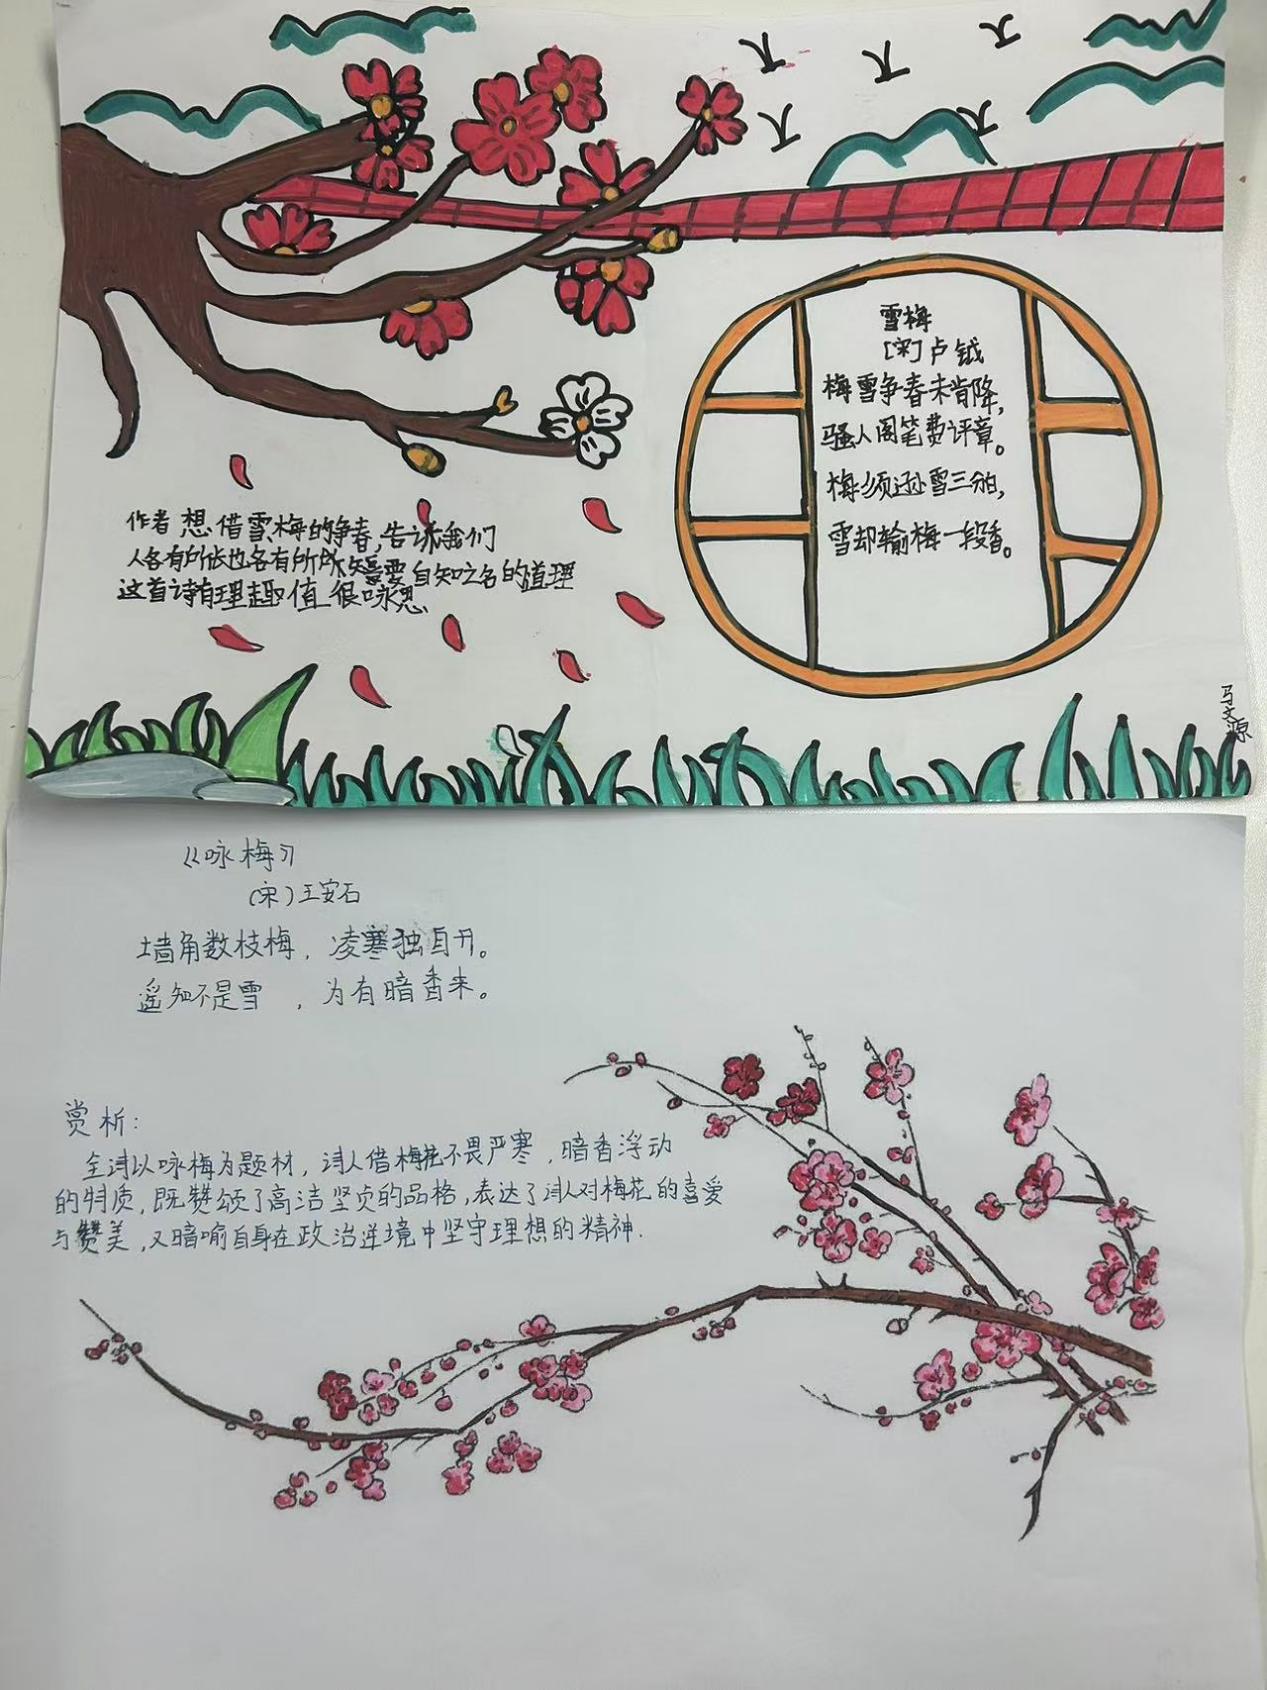 雪梅
[宋]卢钺
梅雪争春未肯降,
骚人阁笔费评章。
梅须逊雪三分白,
雪却输梅一段香。
作者想借雪、梅的争春,告诉我们
人各有所长也各有所短要自知之名的道理
这首诗有理趣值很咏思
马文源
《咏梅》
(宋)王安石
墙角数枝梅,凌寒独自开。
遥知不是雪,为有暗香来。
赏析:
全诗以咏梅为题材,诗人借梅花不畏严寒,暗香浮动
的特质,既赞颂了高洁坚贞的品格,表达了诗人对梅花的喜爱
与赞美,又暗喻自身在政治逆境中坚守理想的精神.